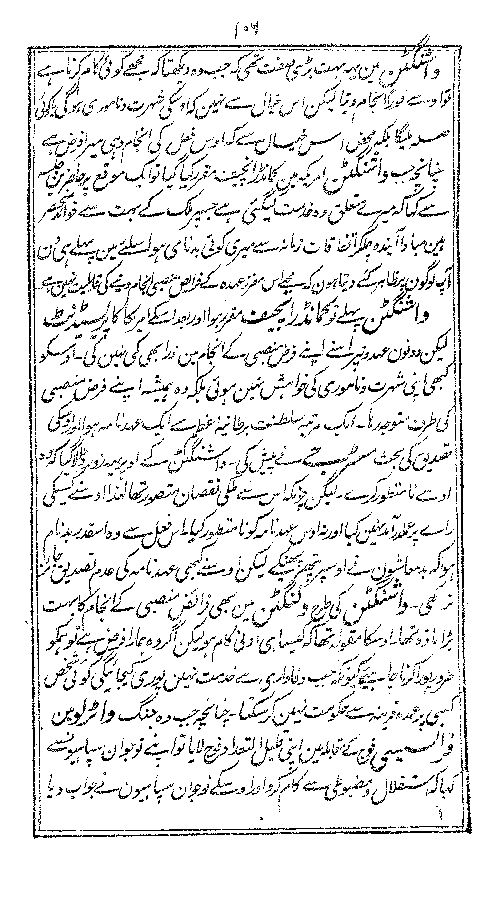 ۱۰۶
واشنگٹن مین یہہ بہت بڑی صفت تھی کہ جب وہ دیکھتا کہ مجھے کوئی کام کرنا ہے
تو اوسے فوراً انجام دیتا لیکن اس خیال سے نہین کہ اوسکی شہرت و ناموری ہوگی یا کوئی
صلہ ملیگا بلکہ محض اس خیال سے کہ اوس فرض کی انجام دہی میرا فرض ہے
چنانچہ جب واشنگٹن امریکہ مین کمانڈر انچیف مقرر کیا گیا تو ایک موقع پر
سے کہا کہ میرے متعلق وہ خدمت لیگئی ہے جسپر ملک کے بہت سے فوائد منحصر
ہین مبادا آیندہ چلکر اتفاقات زمانہ سے میری کوئی بدنامی ہو اسلئے مین پہلے ہی دن
آپ لوگون پر ظاہر کئے دیتا ہون کہ مجھے اس مقررہ عہدہ کے فرائض منصبی انجام دینے کی قابلیت نہین ہے
واشنگٹن پہلے تو کمانڈر انچیف مقرر ہوا اور بعد اسکے امریکا کا پریسیڈنٹ
لیکن دونون عہدونپر اسنے اپنے فرض منصبی کے انجام مین ذرا بھی کمی نہین کی۔ اوسکو
کبھی اپنی شہرت و ناموری کی خواہش نہین ہوئی بلکہ وہ ہمیشہ اپنے فرض منصبی
کی طرف متوجہ رہا۔ ایک مرتبہ سلطنت برطانیۂ عظمیٰ سے ایک عہدنامہ ہوا اور اوسکی
تصدیق کی بحث نے پیش کی۔ واشنگٹن کے اوپر بیحد زور ڈالا گیا کہ وہ
اوسے نامنظور کرے۔ لیکن چونکہ اس سے ملکی نقصان متصور تھا لہذا اوسنے کسیکی
راے پر عملدرآمد نہین کیا اور نہ اوس عہدنامہ کو نامنظور کیا۔ اس فعل سے وہ اسقدر بدنام
ہوا کہ بدمعاشون نے اوسپر پتھر پھینکے لیکن اوسنے کبھی عہدنامہ کی عدم تصدیق جائز
نہ رکھی۔ واشنگٹن کی طرح ولنگٹن مین بھی فرائض منصبی کے انجام کا بہت
بڑا مادہ تھا۔ اوسکا مقولہ تھا کہ کیسا ہی ادنی کام ہو لیکن اگر وہ ہمارا فرض ہے تو ہمکو
ضرور پورا کرنا چاہیے کیونکہ جب وفاداری سے خدمت نہین پوری کیجائیگی کوئی شخص
کبھی پر عمدہ قرینہ سے حکومت نہین کر سکتا۔ چنانچہ جب وہ جنگ واٹرلو مین
فرانسیسی فوج کے مقابلہ مین اپنی قلیل التعداد فوج لایا تو اپنے نوجوان سپاہیونسے
کہا کہ استقلال و مضبوطی سے کام کرو اور اوسکے نوجوان سپاہیون نے جواب دیا